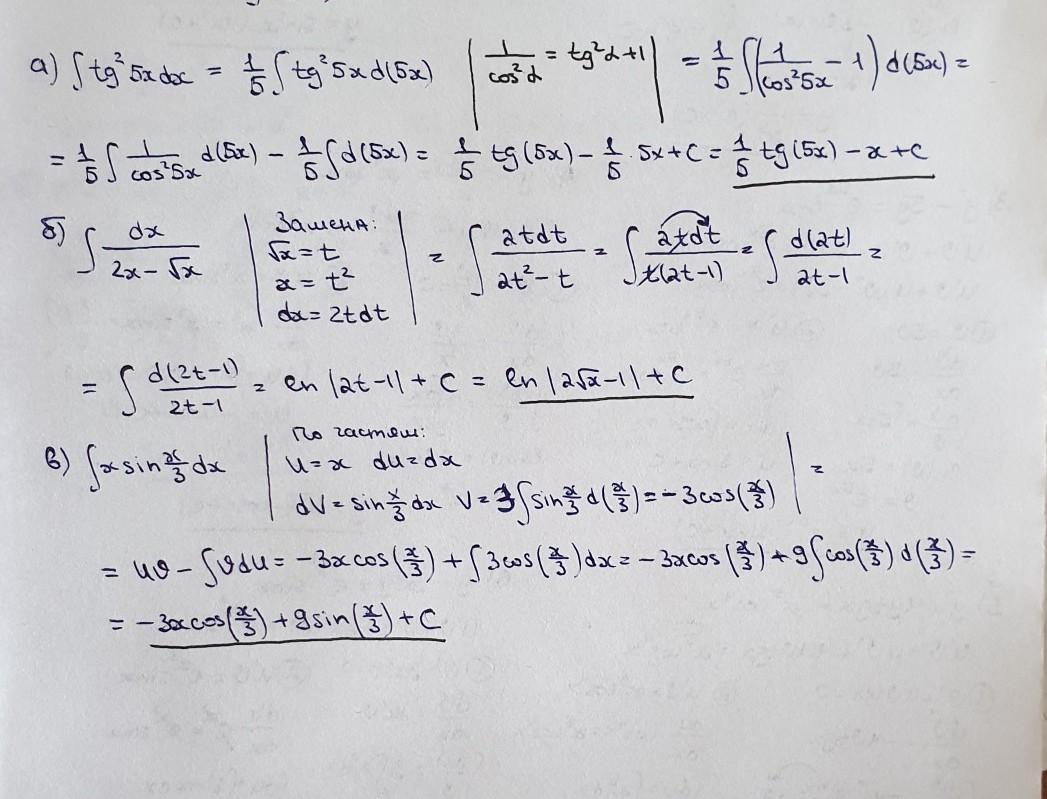 а) ∫tg²5xdx = 1/5 ∫tg²5xd(5x) | 1/cos²α = tg²α+1 | = 1/5 ∫(1/cos²5x − 1) d(5x) =
= 1/5 ∫ 1/cos²5x d(5x) − 1/5 ∫d(5x) = 1/5 tg(5x) − 1/5 · 5x + C = 1/5 tg(5x) − x + C
б) ∫ dx/(2x − √x) | Замена: √x = t x = t² dx = 2tdt | = ∫ 2tdt/(2t² − t) = ∫ 2tdt/(t(2t−1)) = ∫ d(2t)/(2t−1) =
= ∫ d(2t−1)/(2t−1) = ln |2t−1| + C = ln |2√x−1| + C
в) ∫x sin x/3 dx | По частям: u = x du = dx dV = sin x/3 dx V = 3∫sin x/3 d(x/3) = −3cos(x/3) | =
= uv − ∫vdu = −3x cos(x/3) + ∫3cos(x/3)dx = −3xcos(x/3) + 9∫cos(x/3) d(x/3) =
= −3xcos(x/3) + 9sin(x/3) + C